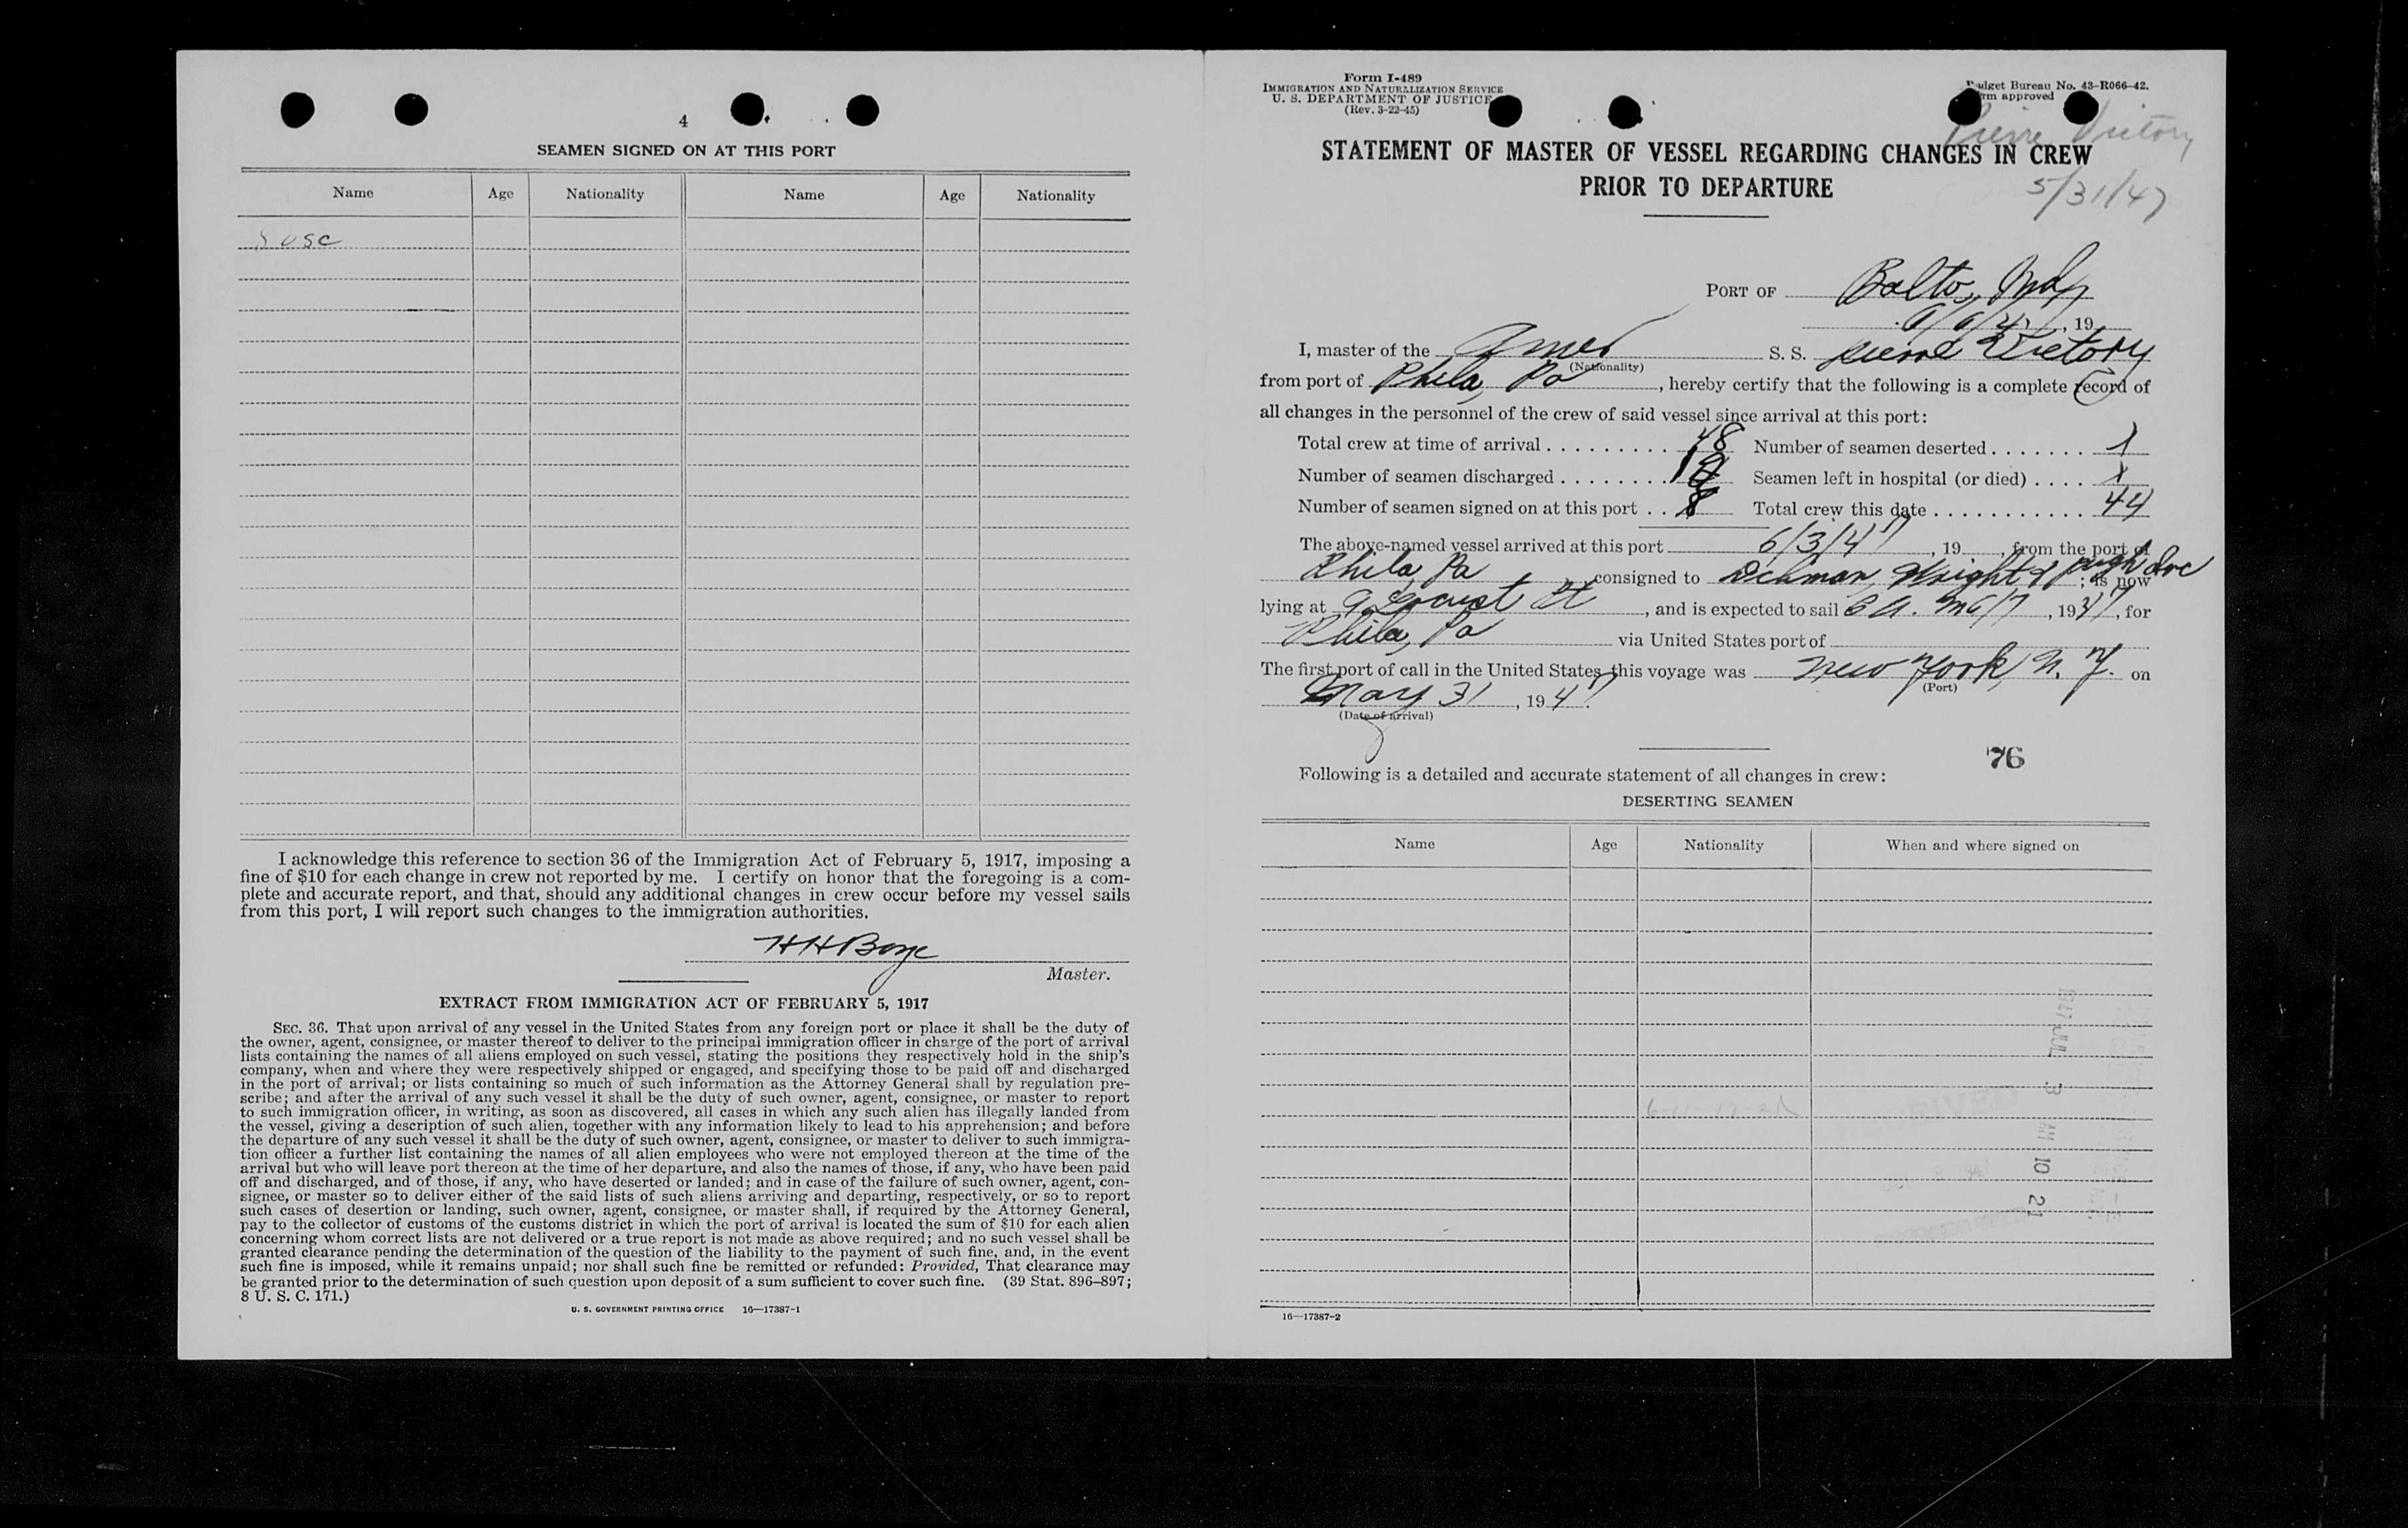 4
SEAMEN SIGNED ON AT THIS PORT
Name Age Nationality Name Age Nationality
I acknowledge this reference to section 36 of the Immigration Act of February 5, 1917, imposing a
fine of $10 for each change in crew not reported by me. I certify on honor that the foregoing is a com-
plete and accurate report, and that, should any additional changes in crew occur before my vessel sails
from this port, I will report such changes to the immigration authorities.
HHBoye
Master.
EXTRACT FROM IMMIGRATION ACT OF FEBRUARY 5, 1917
SEC. 36. That upon arrival of any vessel in the United States from any foreign port or place it shall be the duty of
the owner, agent, consignee, or master thereof to deliver to the principal immigration officer in charge of the port of arrival
lists containing the names of all aliens employed on such vessel, stating the positions they respectively hold in the ship's
company, when and where they were respectively shipped or engaged, and specifying those to be paid off and discharged
in the port of arrival; or lists containing so much of such information as the Attorney General shall by regulation pre-
scribe; and after the arrival of any such vessel it shall be the duty of such owner, agent, consignee, or master to report
to such immigration officer, in writing, as soon as discovered, all cases in which any such alien has illegally landed from
the vessel, giving a description of such alien, together with any information likely to lead to his apprehension; and before
the departure of any such vessel it shall be the duty of such owner, agent, consignee, or master to deliver to such immigra-
tion officer a further list containing the names of all alien employees who were not employed thereon at the time of the
arrival but who will leave port thereon at the time of her departure, and also the names of those, if any, who have been paid
off and discharged, and of those, if any, who have deserted or landed; and in case of the failure of such owner, agent, con-
signee, or master so to deliver either of the said lists of such aliens arriving and departing, respectively, or so to report
such cases of desertion or landing, such owner, agent, consignee, or master shall, if required by the Attorney General,
pay to the collector of customs of the customs district in which the port of arrival is located the sum of $10 for each alien
concerning whom correct lists are not delivered or a true report is not made as above required; and no such vessel shall be
granted clearance pending the determination of the question of the liability to the payment of such fine, and, in the event
such fine is imposed, while it remains unpaid; nor shall such fine be remitted or refunded: Provided, That clearance may
be granted prior to the determination of such question upon deposit of a sum sufficient to cover such fine. (39 Stat. 896–897;
8 U. S. C. 171.)
U. S. GOVERNMENT PRINTING OFFICE 16—17387-1
Form I-489
IMMIGRATION AND NATURALIZATION SERVICE
U. S. DEPARTMENT OF JUSTICE
(Rev. 3-22-45)
Budget Bureau No. 43-R066-42.
Form approved
Pierre Victory
STATEMENT OF MASTER OF VESSEL REGARDING CHANGES IN CREW
PRIOR TO DEPARTURE
5/31/47
PORT OF Balto, Md
6/6/47, 19
I, master of the Amer S. S. Pierre Victory
(Nationality)
from port of Phila, Pa, hereby certify that the following is a complete record of
all changes in the personnel of the crew of said vessel since arrival at this port:
Total crew at time of arrival 48 Number of seamen deserted 1
Number of seamen discharged Seamen left in hospital (or died) 1
Number of seamen signed on at this port 8 Total crew this date 44
The above-named vessel arrived at this port 6/3/47, 19 , from the port of
Phila, Pa consigned to Dichman, Wright & Pugh Inc; is now
lying at 9 Locust St, and is expected to sail 6/7, 1947, for
Phila, Pa via United States port of
The first port of call in the United States this voyage was New York, N. Y. on
(Port)
May 31, 1947.
(Date of arrival)
76
Following is a detailed and accurate statement of all changes in crew:
DESERTING SEAMEN
Name Age Nationality When and where signed on
RECEIVED
1947 JUL 3 AM 10 21
16—17387-2